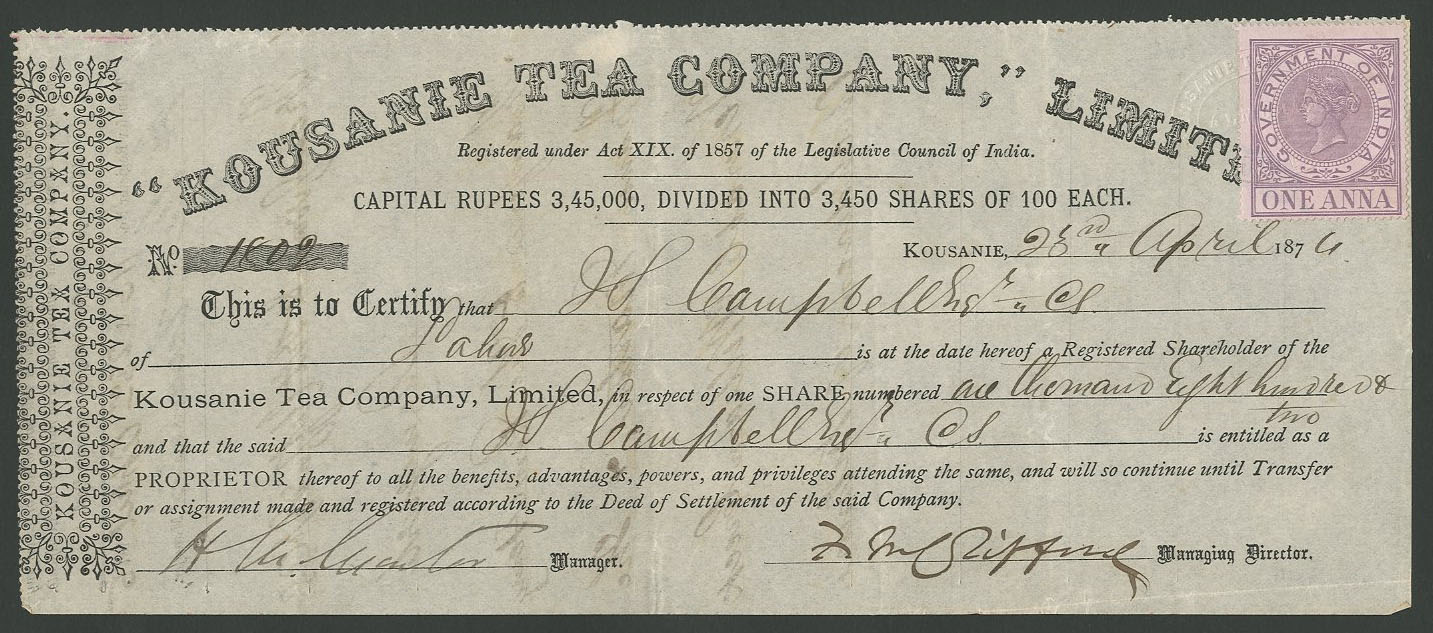 "KOUSANIE TEA COMPANY," LIMITE
GOVERNMENT OF INDIA
ONE ANNA
KOUSANIE TEA COMPANY.
Registered under Act XIX. of 1857 of the Legislative Council of India.
CAPITAL RUPEES 3,45,000, DIVIDED INTO 3,450 SHARES OF 100 EACH.
No. 1802
KOUSANIE, April 187
This is to Certify that Campbell Esqr CS.
of Lahore is at the date hereof a Registered Shareholder of the
Kousanie Tea Company, Limited, in respect of one SHARE numbered one thousand Eight hundred &
two
and that the said Campbell Esqr CS. is entitled as a
PROPRIETOR thereof to all the benefits, advantages, powers, and privileges attending the same, and will so continue until Transfer
or assignment made and registered according to the Deed of Settlement of the said Company.
Manager. Managing Director.